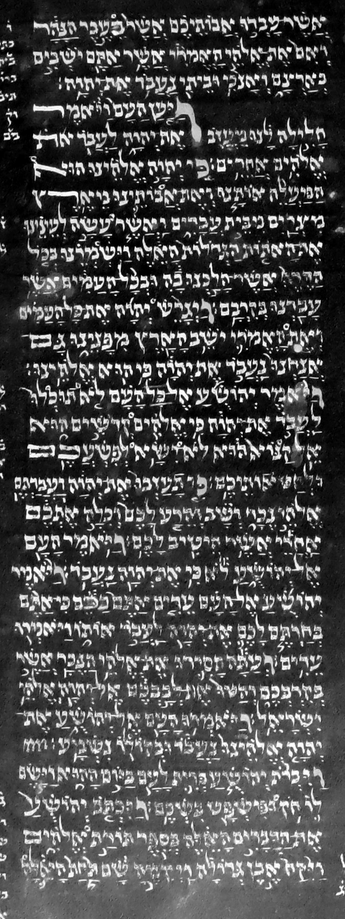 אשר עבדו אבותיכם אשר בעבר הנהר
ואם את אלהי האמרי אשר אתם ישבים
בארצם ואנכי וביתי נעבד את יהוה׃
ויען העם ויאמר
חלילה לנו מעזב את יהוה לעבד
אלהים אחרים׃ כי יהוה אלהינו הוא
המעלה אותנו ואת אבותינו מארץ
מצרים מבית עבדים ואשר עשה לעינינו
את האתות הגדלות האלה וישמרנו בכל
הדרך אשר הלכנו בה ובכל העמים אשר
עברנו בקרבם׃ ויגרש יהוה את כל העמים
ואת האמרי ישב הארץ מפנינו גם
אנחנו נעבד את יהוה כי הוא אלהינו׃
ויאמר יהושע אל כל העם לא תוכלו
לעבד את יהוה כי אלהים קדשים הוא
אל קנוא הוא לא ישא לפשעכם
ולחטאותיכם׃ כי תעזבו את יהוה ועבדתם
אלהי נכר ושב והרע לכם וכלה אתכם
אחרי אשר היטיב לכם׃ ויאמר העם
אל יהושע לא כי את יהוה נעבד׃ ויאמר
יהושע אל העם עדים אתם בכם כי אתם
בחרתם לכם את יהוה לעבד אותו ויאמרו
עדים׃ ועתה הסירו את אלהי הנכר אשר
בקרבכם והטו את לבבכם אל יהוה אלהי
ישראל׃ ויאמרו העם אל יהושע את
יהוה אלהינו נעבד ובקולו נשמע׃
ויכרת יהושע ברית לעם ביום ההוא וישם
לו חק ומשפט בשכם׃ ויכתב יהושע
את הדברים האלה בספר תורת אלהים
ויקח אבן גדולה ויקימה שם תחת האלה